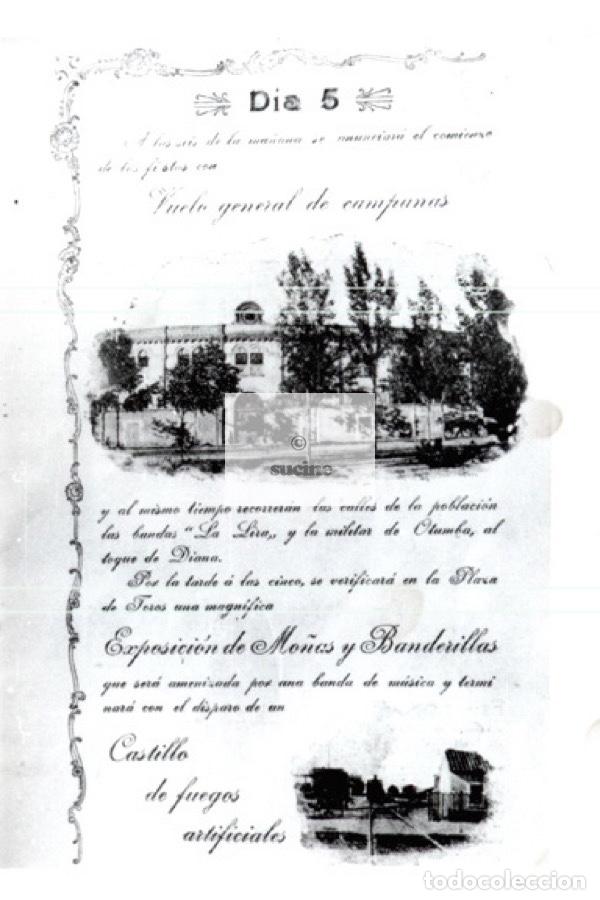 Dia 5
A las seis de la mañana se anunciará el comienzo
de las fiestas con
Vuelo general de campanas
© sucine
y al mismo tiempo recorrerán las calles de la población
las bandas "La Lira„ y la militar de Otumba, al
toque de Diana.
Por la tarde á las cinco, se verificará en la Plaza
de Toros una magnífica
Exposición de Moñas y Banderillas
que será amenizada por una banda de música y termi
nará con el disparo de un
Castillo
de fuegos
artificiales
todocoleccion